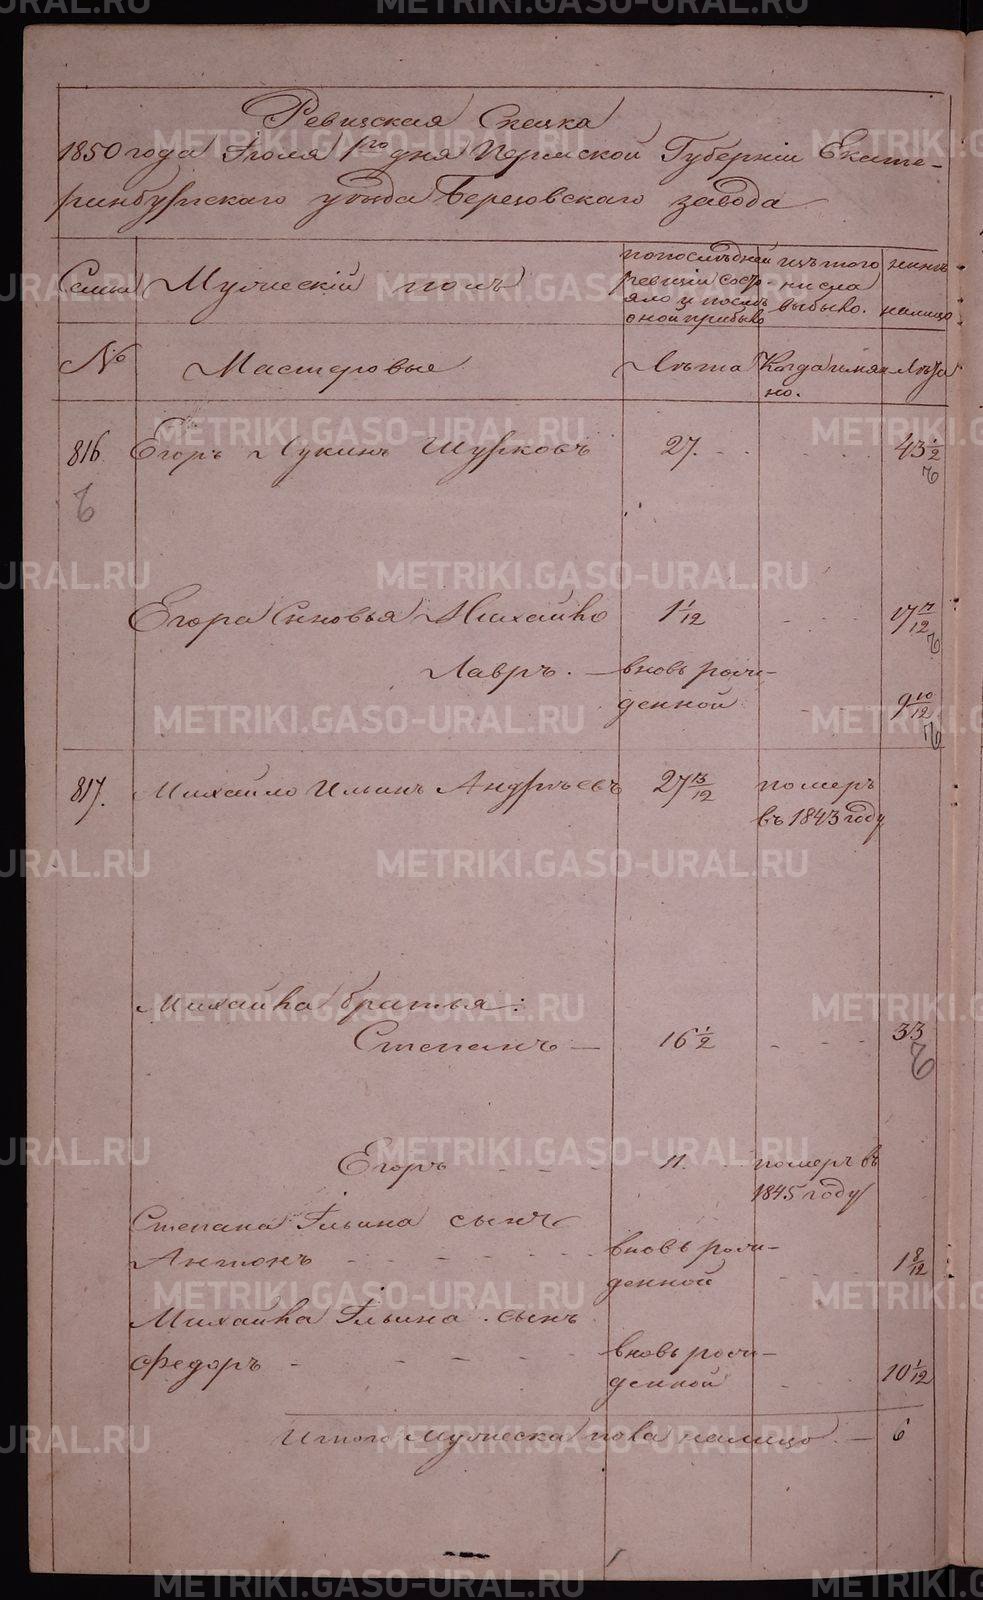 Ревизская Сказка
1850 года Іюля 1го дня Пермской Губерніи Екате-
ринбургскаго уѣзда Березовскаго завода
Семьи Мужескій полъ
по последней ревизіи состояло и послѣ оной прибыло
изъ того числа выбыло.
нынѣ налицо
№ Мастеровые Лѣта Когда имянно. Лѣта
816 Егоръ Лукинъ Шурковъ 27. 43 1/2
Егора Сыновья Михайло 1 1/12 17 7/12
Лавръ. — вновь рож-
денной 9 10/12
817. Михайло Ильинъ Андрѣевъ 27 померъ
въ 1843 году
Михайла братья:
Степанъ — 16 1/2 33
Егоръ 11. померъ въ
1845 году
Степана Ильина сынъ
Антонъ вновь рож-
денной 1 8/12
Михайла Ильина сынъ
Федоръ вновь рож-
денной 10 1/12
Итого Мужеска пола налицо — 6
METRIKI.GASO-URAL.RU